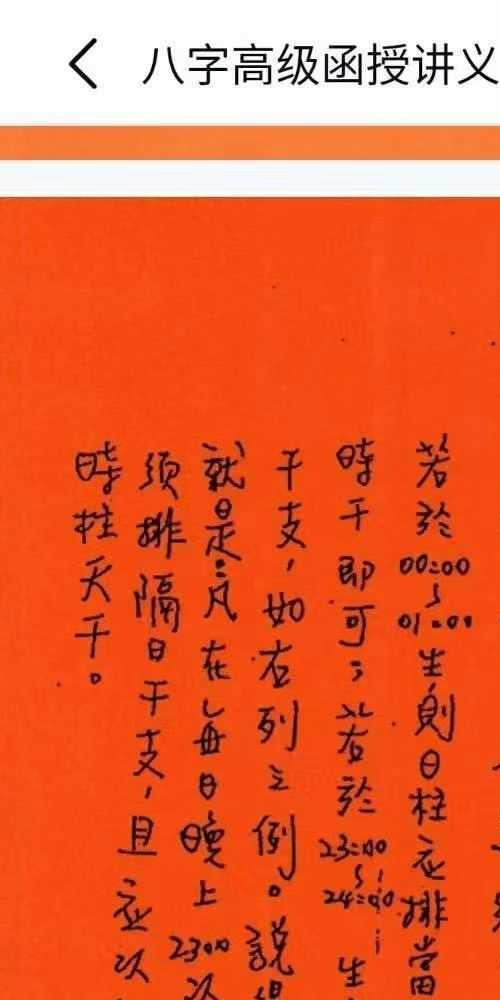 八字高级函授讲义
若於00:00~01:00生,則日柱应排當
時干即可;若於23:00~24:00生
干支,如右列之例。說
就是:凡在每日晚上2300以
須排隔日干支,且应以
時柱天干。